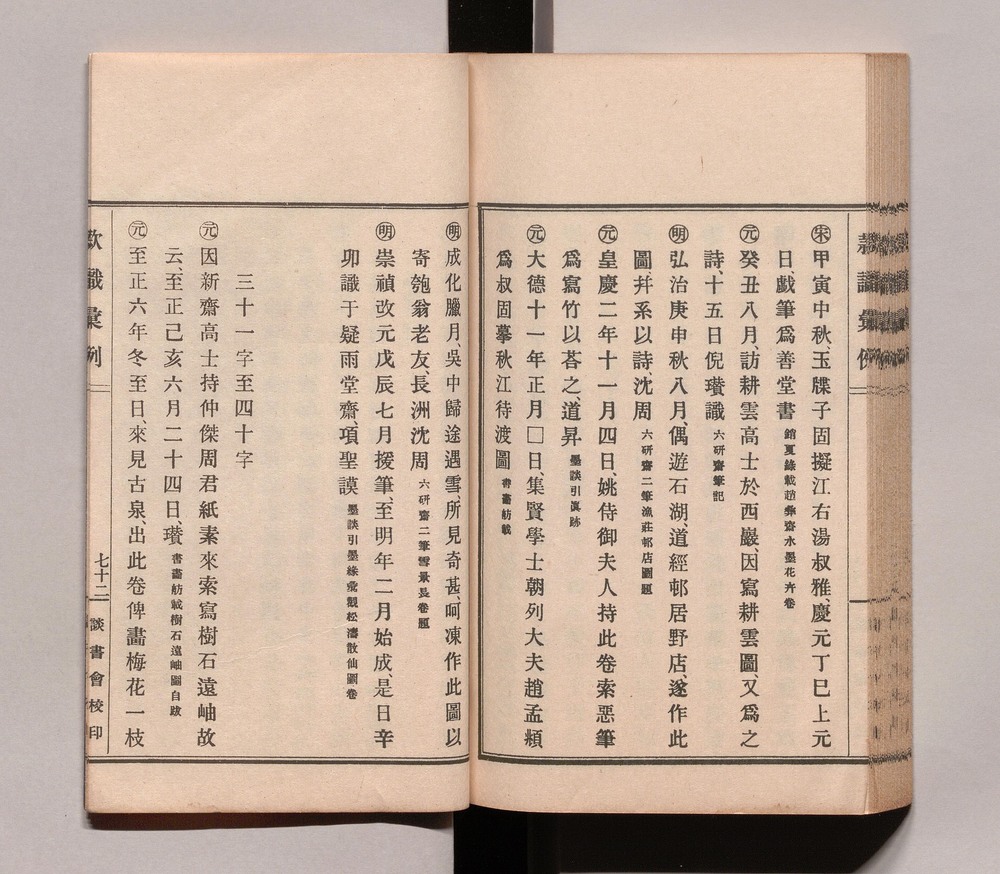 ㊍宋 甲寅中秋、玉牒子固擬江右湯叔雅、慶元丁巳上元
日、戯筆爲善堂書 館夏錄載趙彝齋水墨花卉卷
元 癸丑八月、訪耕雲高士於西巖、因寫耕雲圖、又爲之
詩、十五日倪瓚識 六硏齋筆記
明 弘治庚申秋八月、偶遊石湖、道經邨居野店、遂作此
圖幷系以詩、沈周 六硏齋二筆漁莊邨店圖題
元 皇慶二年十一月四日、姚侍御夫人持此卷索惡筆
爲寫竹以荅之、道昇 墨談引眞跡
元 大德十一年正月□日、集賢學士朝列大夫趙孟頫
爲叔固摹秋江待渡圖 書畵舫載
明 成化臘月、吳中歸途遇雪、所見奇甚、呵凍作此圖以
寄匏翁老友、長洲沈周 六硏齋二筆雪景長卷題
明 崇禎改元戊辰七月援筆、至明年二月始成、是日辛
卯識于疑雨堂齋、項聖謨 墨談引墨緣彙觀松濤散仙圖卷
三十一字至四十字
元 因新齋高士持仲傑周君紙素來索寫樹石遠岫故
云、至正己亥六月二十四日、瓚 書畵舫載樹石遠岫圖自跋
元 至正六年冬至日、來見古泉、出此卷俾畵梅花一枝
款識彙例
七十二
談書會校印